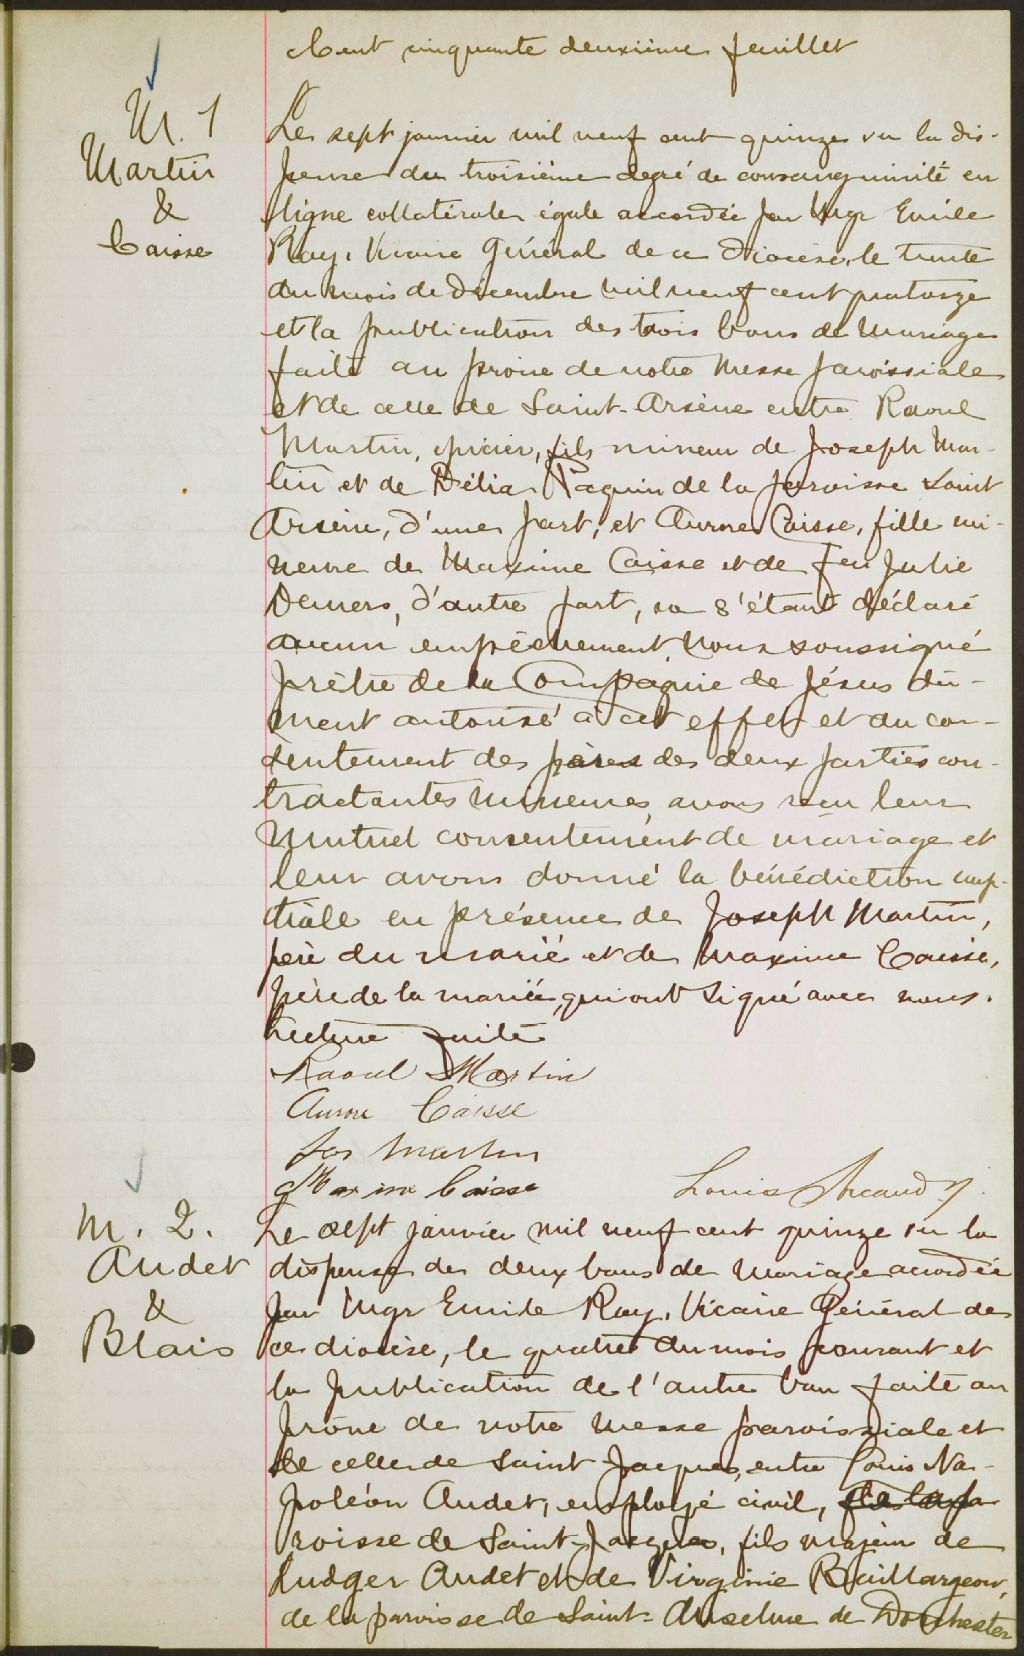 Cent cinquante deuxième feuillet
M. 1
Martin
&
Caisse
Le sept janvier mil neuf cent quinze vu la dis-
pense du troisième degré de consanguinité en
ligne collatérale égale accordée par Mgr Emile
Roy, Vicaire Général de ce diocèse, le trente
du mois de décembre mil neuf cent quatorze
et la publication des trois bans de mariage
faite au prône de notre messe paroissiale
et de celle de Saint-Arsène entre Raoul
Martin, épicier, fils mineur de Joseph Mar-
tin et de Délia Paquin de la paroisse Saint
Arsène, d'une part, et Aurore Caisse, fille mi-
neure de Maxime Caisse et de feu Julie
Demers, d'autre part, ne s'étant déclaré
aucun empêchement, nous soussigné
prêtre de la Compagnie de Jésus dû-
ment autorisé à cet effet et du con-
sentement des pères des deux parties con-
tractantes mineures, avons reçu leur
mutuel consentement de mariage et
leur avons donné la bénédiction nup-
tiale en présence de Joseph Martin,
père du marié et de Maxime Caisse,
père de la mariée, qui ont signé avec nous.
Lecture faite
Raoul Martin
Aurore Caisse
Jos Martin
Maxime Caisse
Louis
M. 2.
Audet
&
Blais
Le sept janvier mil neuf cent quinze vu la
dispense de deux bans de mariage accordée
par Mgr Emile Roy, Vicaire Général de
ce diocèse, le quatre du mois courant et
la publication de l'autre ban faite au
prône de notre messe paroissiale et
de celle de Saint Jacques, entre Louis Na-
poléon Audet, employé civil, de la pa
roisse de Saint-Jacques, fils majeur de
Ludger Audet et de Virginie Baillargeon,
de la paroisse de Saint-Anselme de Dorchester